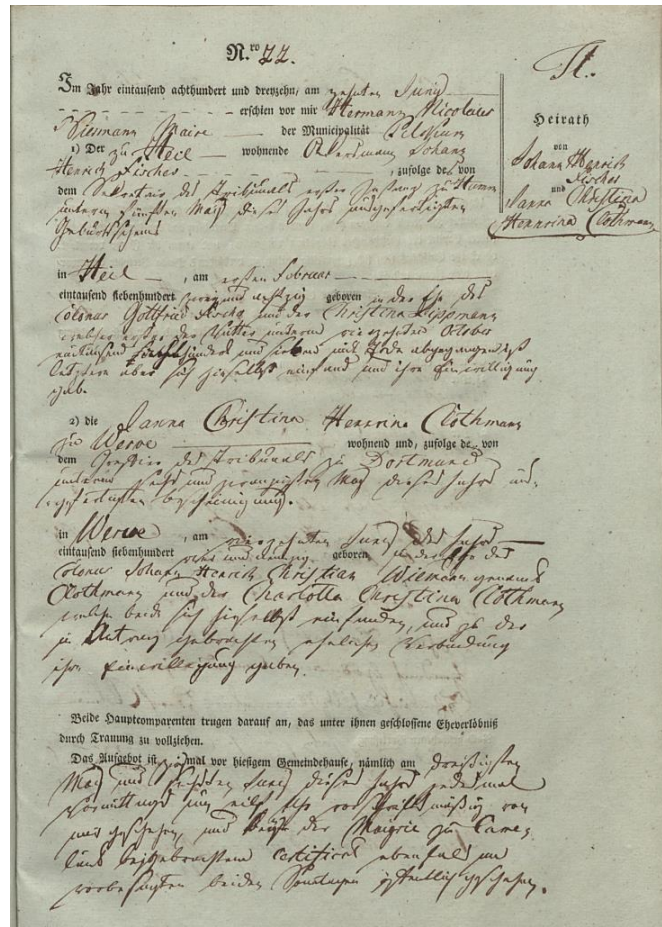 N.ro 22.
Im Jahr eintausend achthundert und dreyzehn, am zehnten Juny
erschien vor mir Hermann Nicolaus
Niemann Maire der Municipalität Pelkum
1) Der zu Heil wohnende Ackersmann Johann
Henrich Fischer, zufolge des von
dem Sekretair des Tribunals erster Instanz zu Hamm
unterm fünften May dieses Jahrs ausgefertigten
Geburtsscheins
in Heil, am ersten Februar
eintausend siebenhundert zwey und achtzig geboren in der Ehe des
Colonus Gottfried Fischer und der Christina Lippmann
welcher erster der Vatter unterm vierzehnten October
eintausend hundert und sieben mit Tode abgegangen ist
letztere aber sich hieselbst einfand und ihre Einwilligung
gab.
2) die Janna Christina Henrina Clothmann
zu Werve wohnend und, zufolge de von
dem Greffier des Tribunals zu Dortmund
unterm sechs und zwanzigsten May dieses Jahrs aus-
gefertigten Bescheinigung.
in Werve, am vierzehnten Juny des Jahrs
eintausend siebenhundert und neunzig geboren in der Ehe des
Colonus Johann Henrich Christian Wiemann genannt
Clothmann und der Charlotta Christina Clothmann
welche beide sich hieselbst einfanden, und zu der
in Antrag gebrachten ehelichen Verbindung
ihre Einwilligung gaben.
Beide Hauptcomparenten trugen darauf an, das unter ihnen geschlossene Eheverlöbniß
durch Trauung zu vollziehen.
Das Aufgebot ist zweymal vor hiesigem Gemeindehause, nämlich am dreißigsten
May und sechsten Juny dieses Jahrs jedesmal
Vormittags um eilf Uhr vorschriftmäßig von
mir geschehen, und der Mairie zu Camen
laut beygebrachtem Certificat ebenfals an
vorbesagten beiden Sonntagen öffentlich geschehen.
Heirath
von
Johann Henrich
Fischer
und
Janna Christina
Hennrina Clothmann